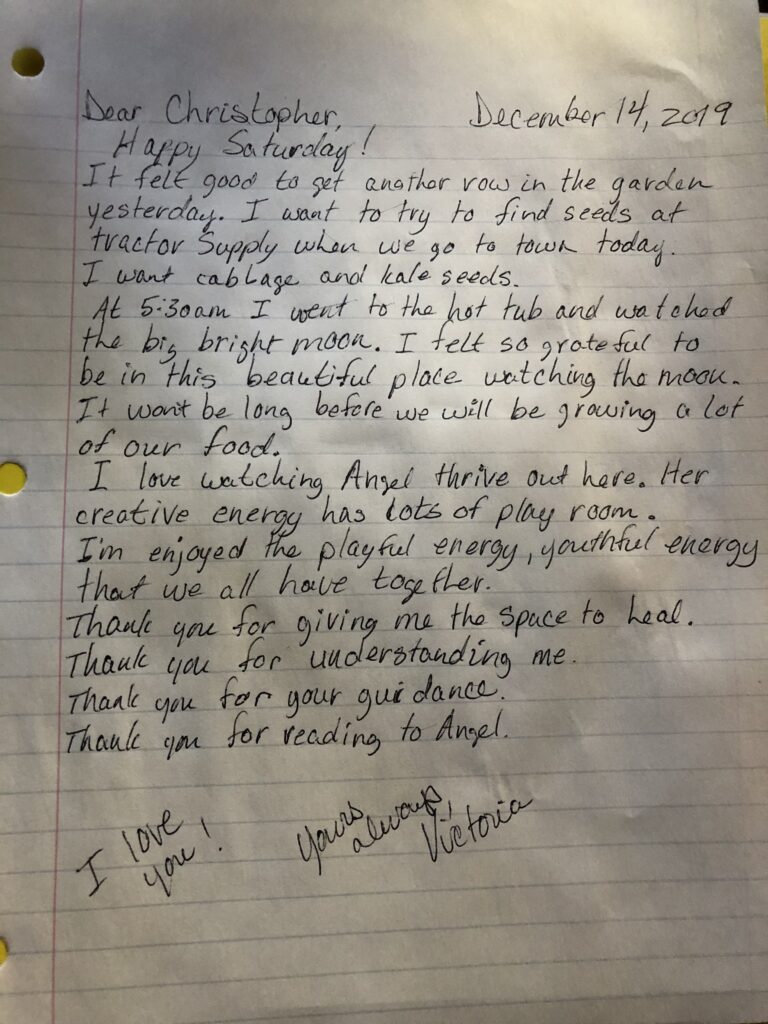 Dear Christopher, December 14, 2019
Happy Saturday!
It felt good to get another row in the garden
yesterday. I want to try to find seeds at
tractor Supply when we go to town today.
I want cabbage and kale seeds.
At 5:30am I went to the hot tub and watched
the big bright moon. I felt so grateful to
be in this beautiful place watching the moon.
It won't be long before we will be growing a lot
of our food.
I love watching Angel thrive out here. Her
creative energy has lots of play room.
I'm enjoyed the playful energy, youthful energy
that we all have together.
Thank you for giving me the space to heal.
Thank you for understanding me.
Thank you for your guidance.
Thank you for reading to Angel.
I love
you!
Yours
always,
Victoria